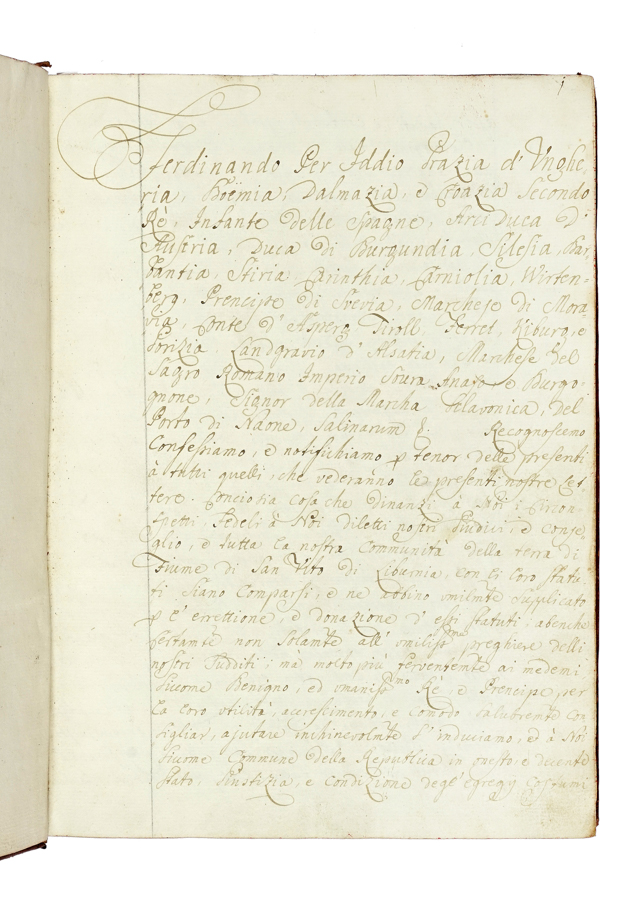 1
Ferdinando Per Iddio Grazia d' Unghe
ria, Boëmia, Dalmazia, e Croazia Secondo
Rè, Infante delle Spagne, Arci Duca D'
Austria, Duca di Burgundia, Silesia, Bar
bantia, Stiria, Carinthia, Carniolia, Wirten-
berg, Prencipe di Svevia, Marchese di Mora
via, Conte d' Asperg Tiroll, Ferret, Kiburg, e
Gorizia, Landgravio d' Alsatia, Marchese del
Sagro Romano Imperio Soura Anaso e Burgo
gnone, Signor della Marcha Sclavonica, del
Porto di Naone, Salinarum &: Recognoscemo
Confessiamo, e notifichiamo p tenor delle presenti
à tutti quelli, che vederanno le presenti nostre let
tere. Conciosia cosa che dinanzi à Noi i Circon-
spetti, Fedeli à Noi diletti nostri Giudici, e Conse
glio, e tutta la nostra Communità della terra di
Fiume di San Vito di Liburnia, con li loro statu
ti siano Comparsi, e ne abbino umilmte supplicato
p l' errettione, e donazione d' essi statuti: abenche
certamte non solamte all' umilissme preghiere delli
nostri sudditi: ma molto più ferventemte ai medemi
siccome Benigno, ed umanissmo Rè, e Prencipe per
la loro utilità, accrescimento, e comodo salubremte con
sigliar, ajutare inchinevolmte s' induciamo, ed à Noi
siccome Commune della Republica in questo e dicente
stato, Giustizia, e condizione degl' egregij Costumi